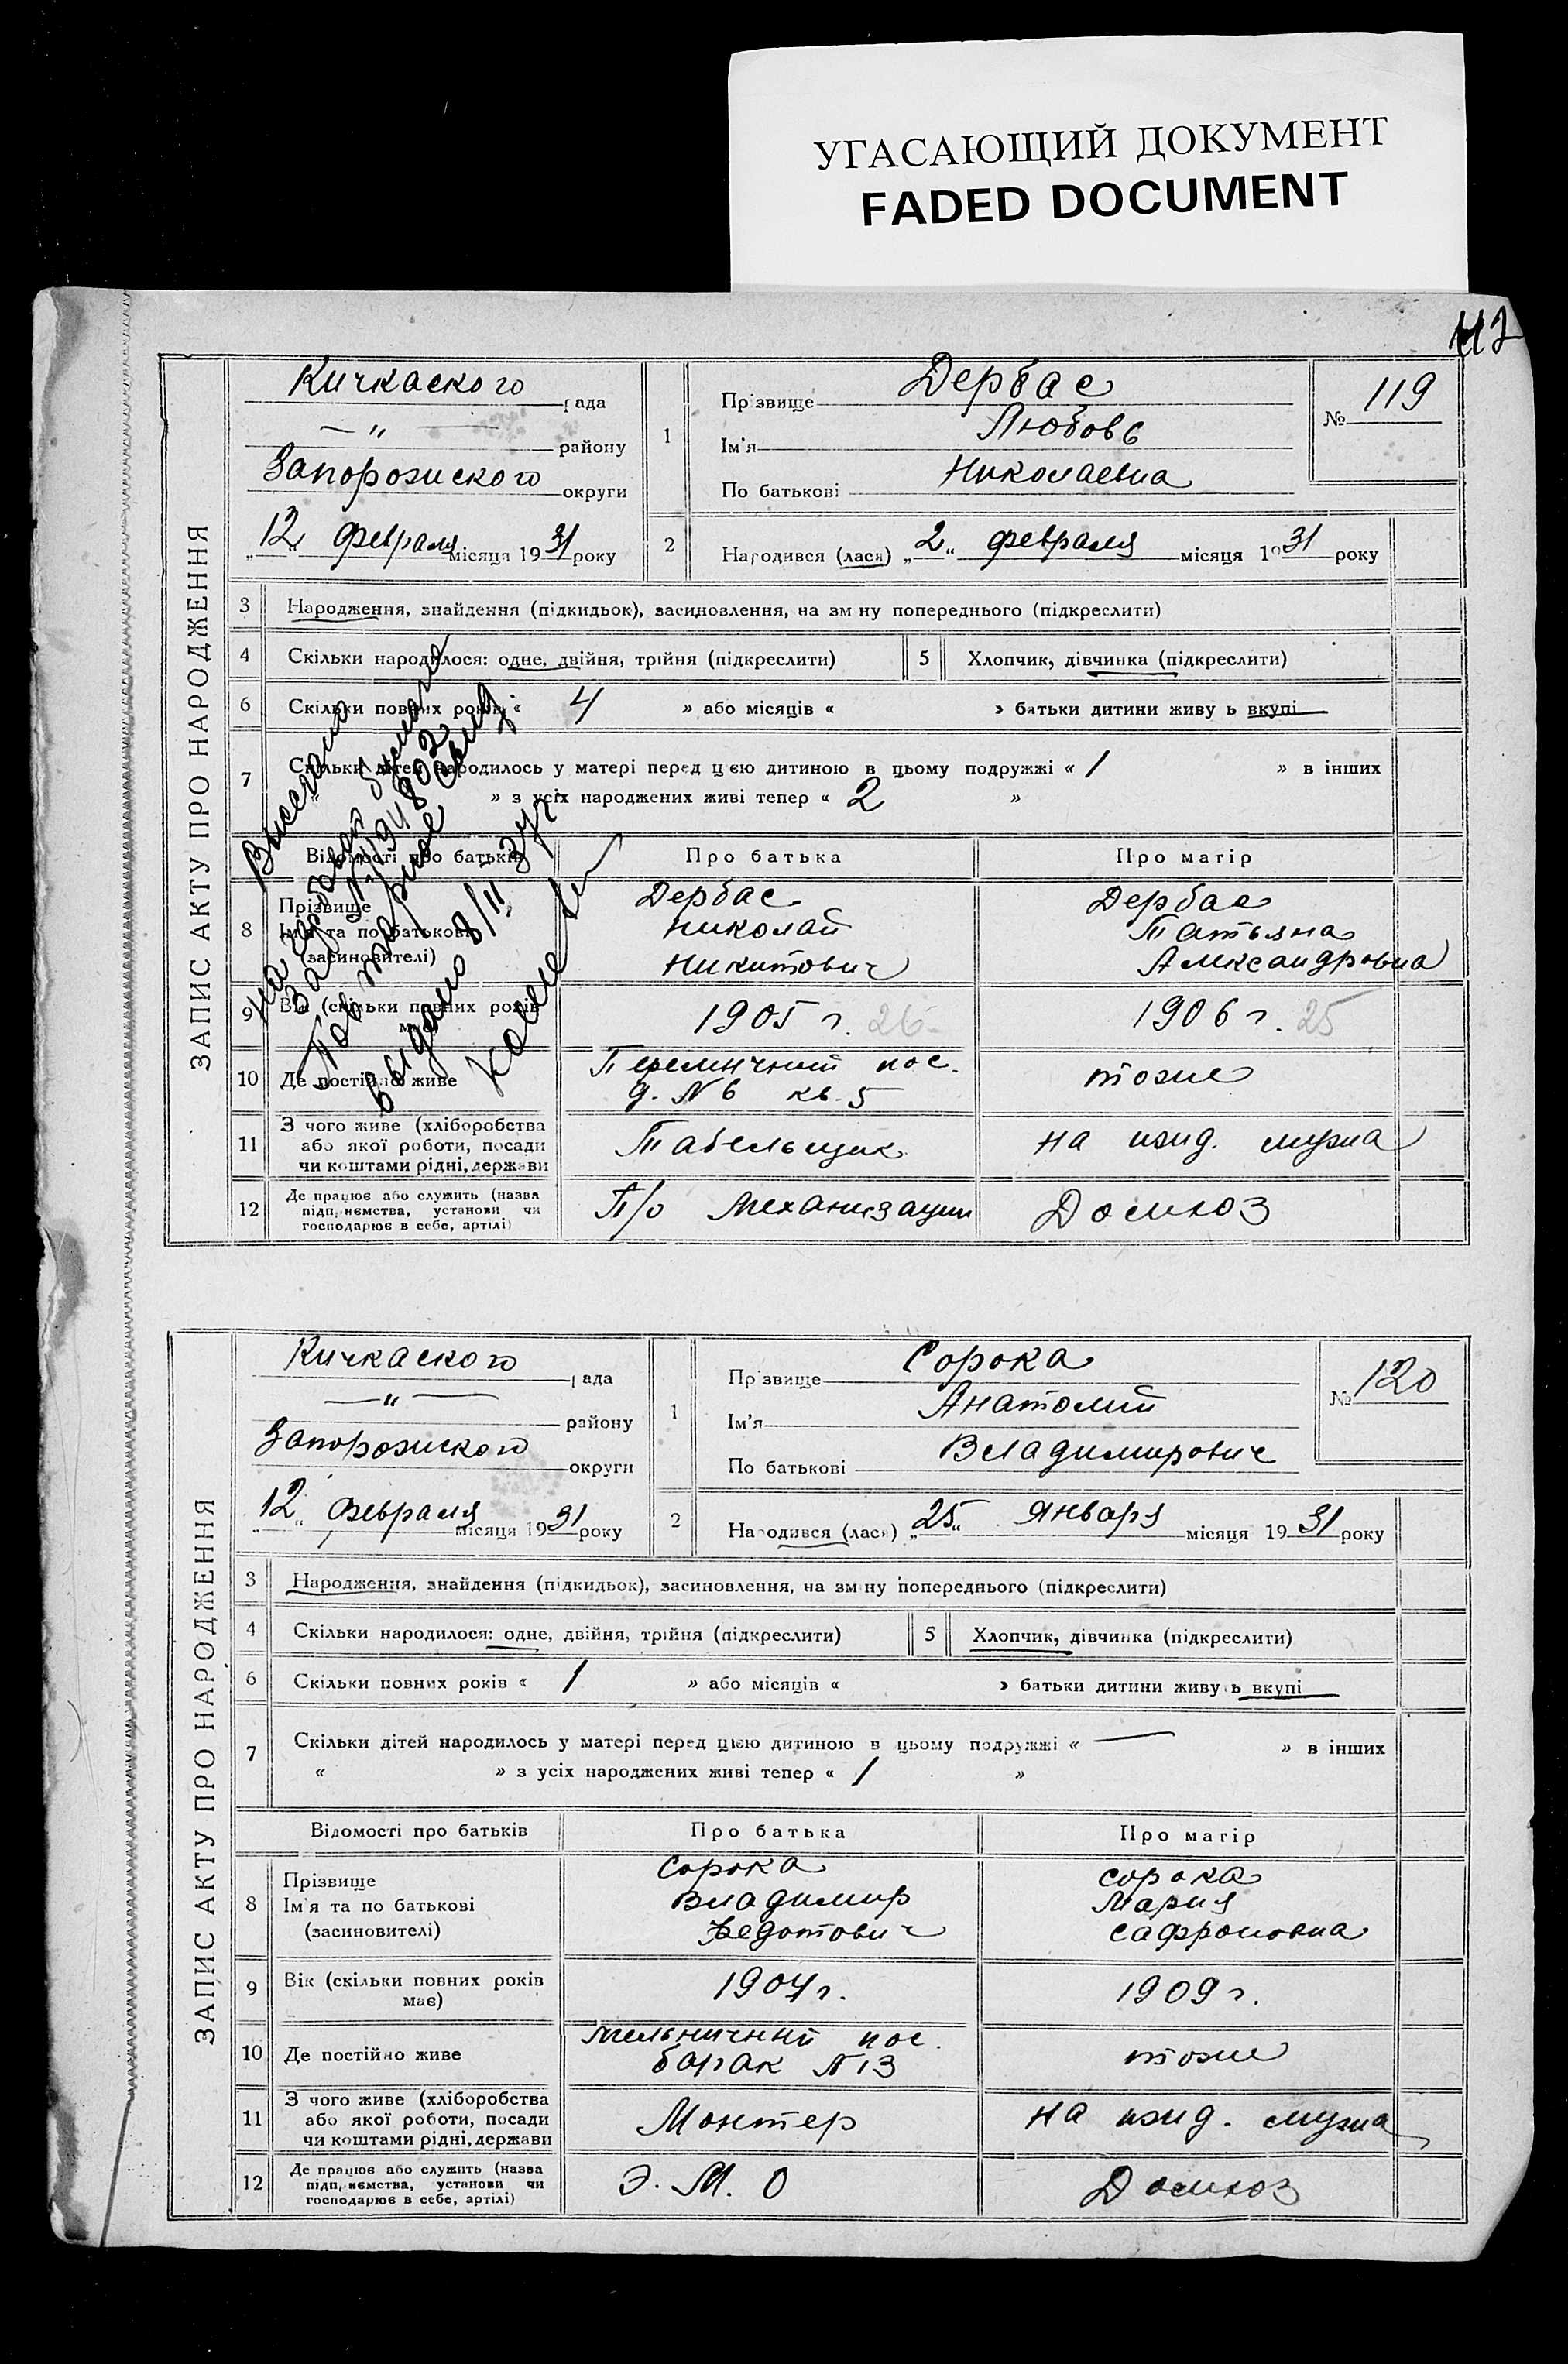 УГАСАЮЩИЙ ДОКУМЕНТ
FADED DOCUMENT
ЗАПИС АКТУ ПРО НАРОДЖЕННЯ
Кичкаского рада
— " — району
Запорожского округи
„12“ февраля місяця 1931 року
1
Прізвище Дербас
Ім'я Любовь
По батькові Николаевна
№ 119
2
Народився (лася) „2“ февраля місяця 1931 року
3 Народження, знайдення (підкидьок), засиновлення, на зміну попереднього (підкреслити)
4 Скільки народилося: одне, двійня, трійня (підкреслити)
5 Хлопчик, дівчинка (підкреслити)
6 Скільки повних років « 4 » або місяців « » батьки дитини живуть вкупі
7 Скільки дітей народилось у матері перед цією дитиною в цьому подружжі « 1 » в інших
« » з усіх народжених живі тепер « 2 »
Відомості про батьків
Про батька
Про матір
8 Прізвище
Ім'я та по батькові
(засиновителі)
Дербас
Николай
Никитович
Дербас
Татьяна
Александровна
9 Вік (скільки повних років
має)
1905 г. 26
1906 г. 25
10 Де постійно живе
пос.
д. № 6 кв. 5
тоже
11 З чого живе (хліборобства
або якої роботи, посади
чи коштами рідні, держави
Табельщик
на ижд. мужа
12 Де працює або служить (назва
підприємства, установи чи
господарює в себе, артілі)
П/о Механизации
Домхоз
Повторное
выдано
ЗАПИС АКТУ ПРО НАРОДЖЕННЯ
Кичкаского рада
— " — району
Запорожского округи
„12“ февраля місяця 1931 року
1
Прізвище Сорока
Ім'я Анатолий
По батькові Владимирович
№ 120
2
Народився (лася) „25“ Января місяця 1931 року
3 Народження, знайдення (підкидьок), засиновлення, на зміну попереднього (підкреслити)
4 Скільки народилося: одне, двійня, трійня (підкреслити)
5 Хлопчик, дівчинка (підкреслити)
6 Скільки повних років « 1 » або місяців « » батьки дитини живуть вкупі
7 Скільки дітей народилось у матері перед цією дитиною в цьому подружжі « — » в інших
« » з усіх народжених живі тепер « 1 »
Відомості про батьків
Про батька
Про матір
8 Прізвище
Ім'я та по батькові
(засиновителі)
Сорока
Владимир
Федотович
Сорока
Мария
Сафроновна
9 Вік (скільки повних років
має)
1907 г.
1909 г.
10 Де постійно живе
Мельничний пос.
барак № 13
тоже
11 З чого живе (хліборобства
або якої роботи, посади
чи коштами рідні, держави
Монтер
на ижд. мужа
12 Де працює або служить (назва
підприємства, установи чи
господарює в себе, артілі)
Э. М. О
Домхоз